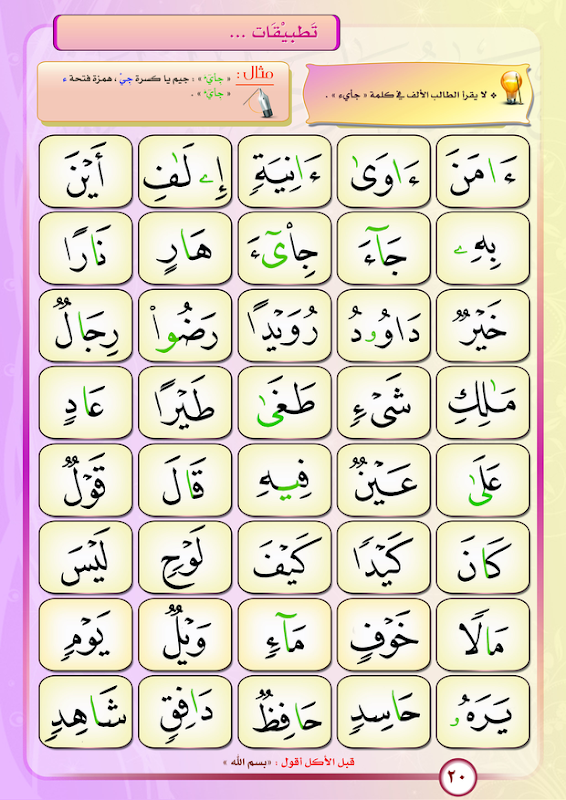 تَطبِيْقَات ...
❖ لا يقرأ الطالب الألف في كلمة « جاْيٓء » .
مثال :
« جِاْيٓءَ » : جيم يا كسرة جِيْ ، همزة فتحة ءَ
« جِاْيٓءَ » .
ءَامَنَ ءَاوَىٰ ءَانِيَةٍ إِۦلَٰفِ أَيْنَ
بِهِۦ جَآءَ جِاْيٓءَ هَارٍ نَارًا
خَيْرٌ دَاوُۥدُ رُوَيْدًا رَضُواْ رِجَالٌ
مَٰلِكِ شَىْءٍ طَغَىٰ طَيْرًا عَادٍ
عَلَىٰ عَيْنٌ فِيهِ قَالَ قَوْلٌ
كَانَ كَيْدًا كَيْفَ لَوْحٍ لَيْسَ
مَالًا خَوْفٍ مَآءٍ وَيْلٌ يَوْمٍ
يَرَهُۥ حَاسِدٍ حَافِظٌ دَافِقٍ شَاهِدٍ
قبل الأكل أقول : «بسم الله »
٢٠